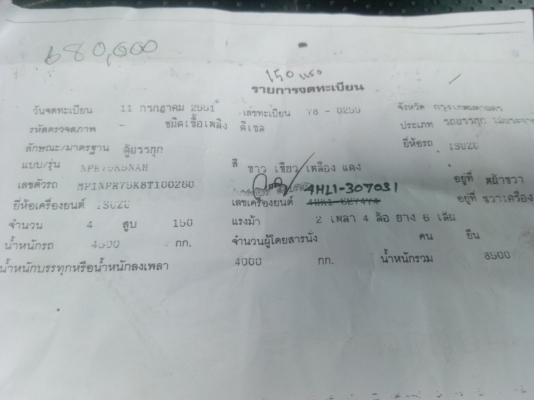 680,000
150 แรง
รายการจดทะเบียน
วันจดทะเบียน 11 กรกฎาคม 2551 เลขทะเบียน 78 - 0250 จังหวัด กรุงเทพมหานคร
รหัสตรวจสภาพ - ชนิดเชื้อเพลิง ดีเซล ประเภท รถบรรทุก
ลักษณะ/มาตรฐาน ตู้บรรทุก ยี่ห้อรถ ISUZU
แบบ/รุ่น สี ขาว เขียว เหลือง แดง
เลขตัวรถ MP1NPR75K8T100260 เลขเครื่องยนต์ 4HL1-307031 อยู่ที่
ยี่ห้อเครื่องยนต์ ISUZU อยู่ที่ ขวาเครื่อง
จำนวน 4 สูบ 150 แรงม้า 2 เพลา 4 ล้อ ยาง 6 เส้น
น้ำหนักรถ 4500 กก. จำนวนผู้โดยสารนั่ง คน ยืน
น้ำหนักบรรทุกหรือน้ำหนักลงเพลา 4000 กก. น้ำหนักรวม 8500